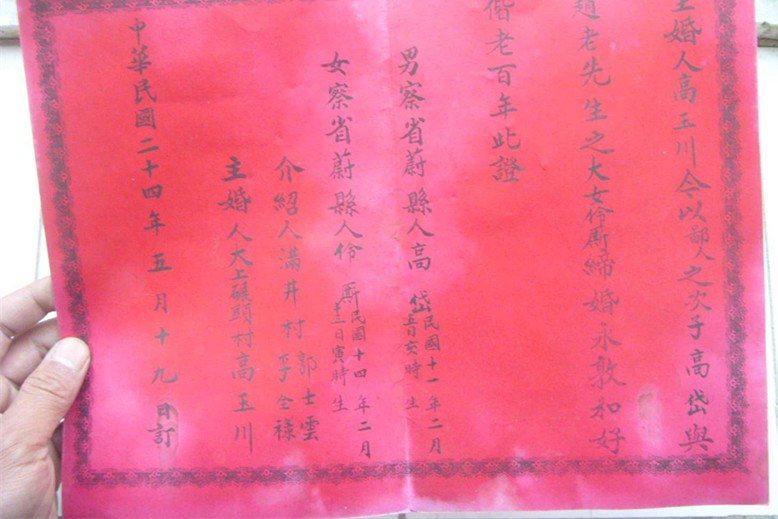 主婚人高玉川今以鄙人之次子高岱與
趙老先生之大女伶厮締婚永敦和好
偕老百年此證
男察省蔚縣人高岱民國十一年二月
亥時生
女察省蔚縣人伶厮民國十四年二月
日寅時生
介紹人滿井村郭士雲
李全祿
主婚人大上碾頭村高玉川
中華民國二十四年五月十九日訂